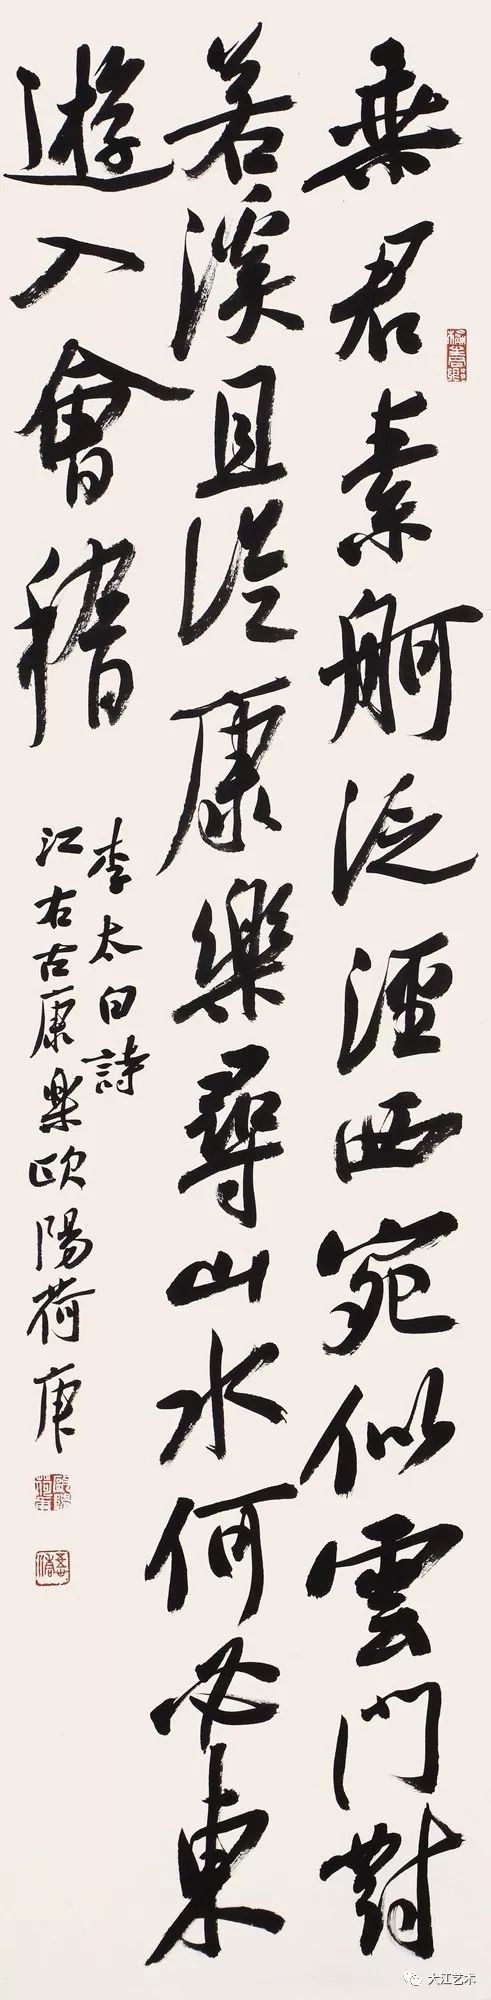 乘君素舸泛涇西宛似雲門對
若溪且從康樂尋山水何必東
遊入會稽
李太白詩
江右古康樂歐陽荷庚
大江艺术